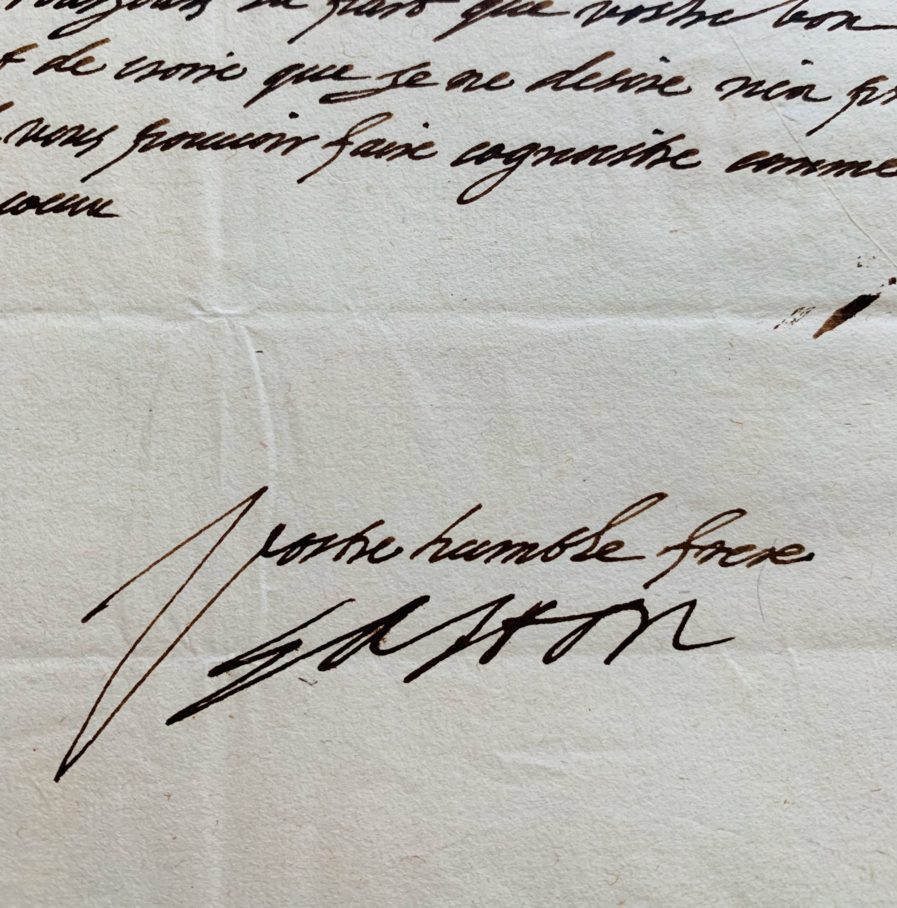 la part que vostre bon
de croire que je ne desire rien
vous pouuoir faire cognoistre comme
coeur
Vostre humble frere
Gaston